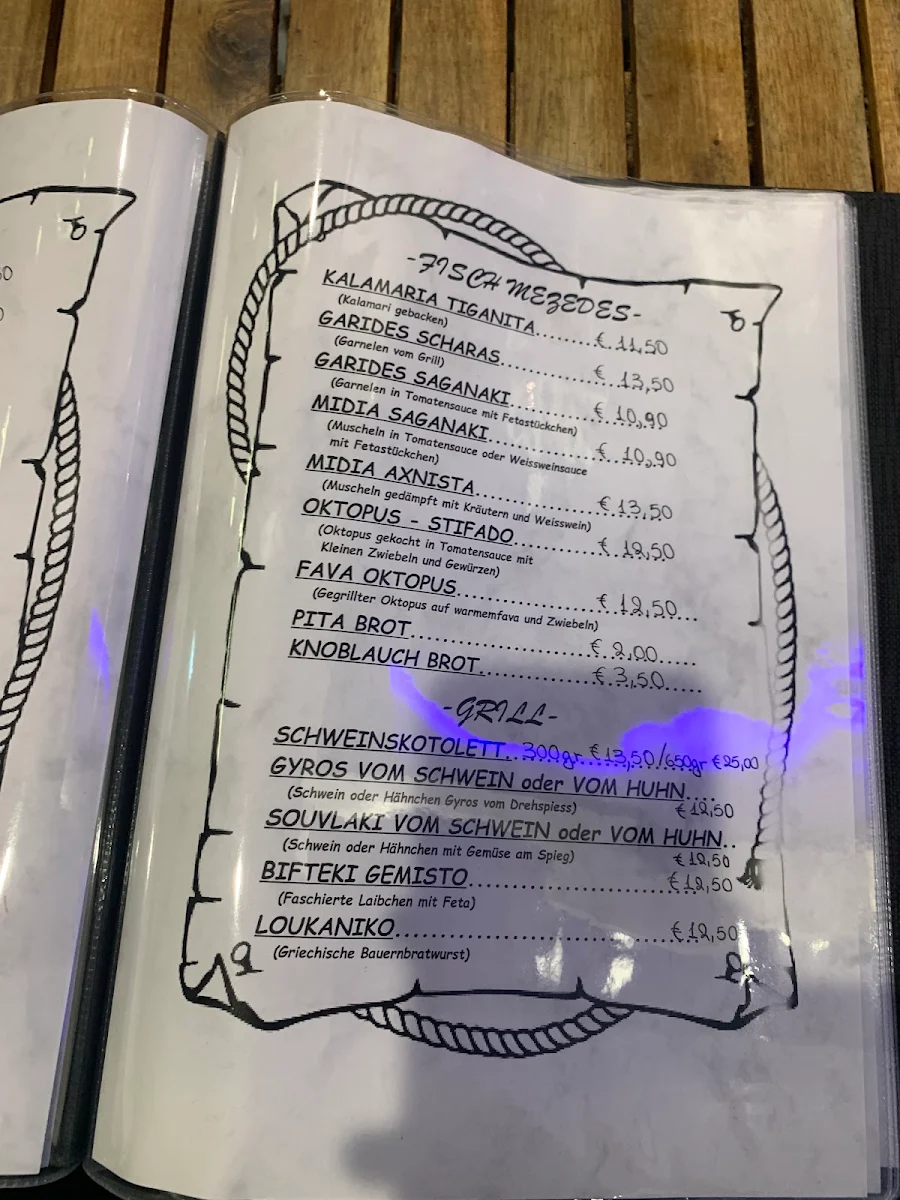 -FISCH MEZEDES-
KALAMARIA TIGANITA.......€ 11,50
(Kalamari gebacken)
GARIDES SCHARAS..........€ 13,50
(Garnelen vom Grill)
GARIDES SAGANAKI.........€ 10,90
(Garnelen in Tomatensauce mit Fetastückchen)
MIDIA SAGANAKI...........€ 10,90
(Muscheln in Tomatensauce oder Weissweinsauce
mit Fetastückchen)
MIDIA AXNISTA............€ 13,50
(Muscheln gedämpft mit Kräutern und Weisswein)
OKTOPUS - STIFADO........€ 12,50
(Oktopus gekocht in Tomatensauce mit
Kleinen Zwiebeln und Gewürzen)
FAVA OKTOPUS.............€ 12,50
(Gegrillter Oktopus auf warmemfava und Zwiebeln)
PITA BROT................€ 2,00
KNOBLAUCH BROT...........€ 3,50
-GRILL-
SCHWEINSKOTOLETT..300gr €13,50/650gr €25,00
GYROS VOM SCHWEIN oder VOM HUHN....
(Schwein oder Hähnchen Gyros vom Drehspiess) €12,50
SOUVLAKI VOM SCHWEIN oder VOM HUHN..
(Schwein oder Hähnchen mit Gemüse am Spieg) €12,50
BIFTEKI GEMISTO..........€12,50
(Faschierte Laibchen mit Feta)
LOUKANIKO................€12,50
(Griechische Bauernbratwurst)